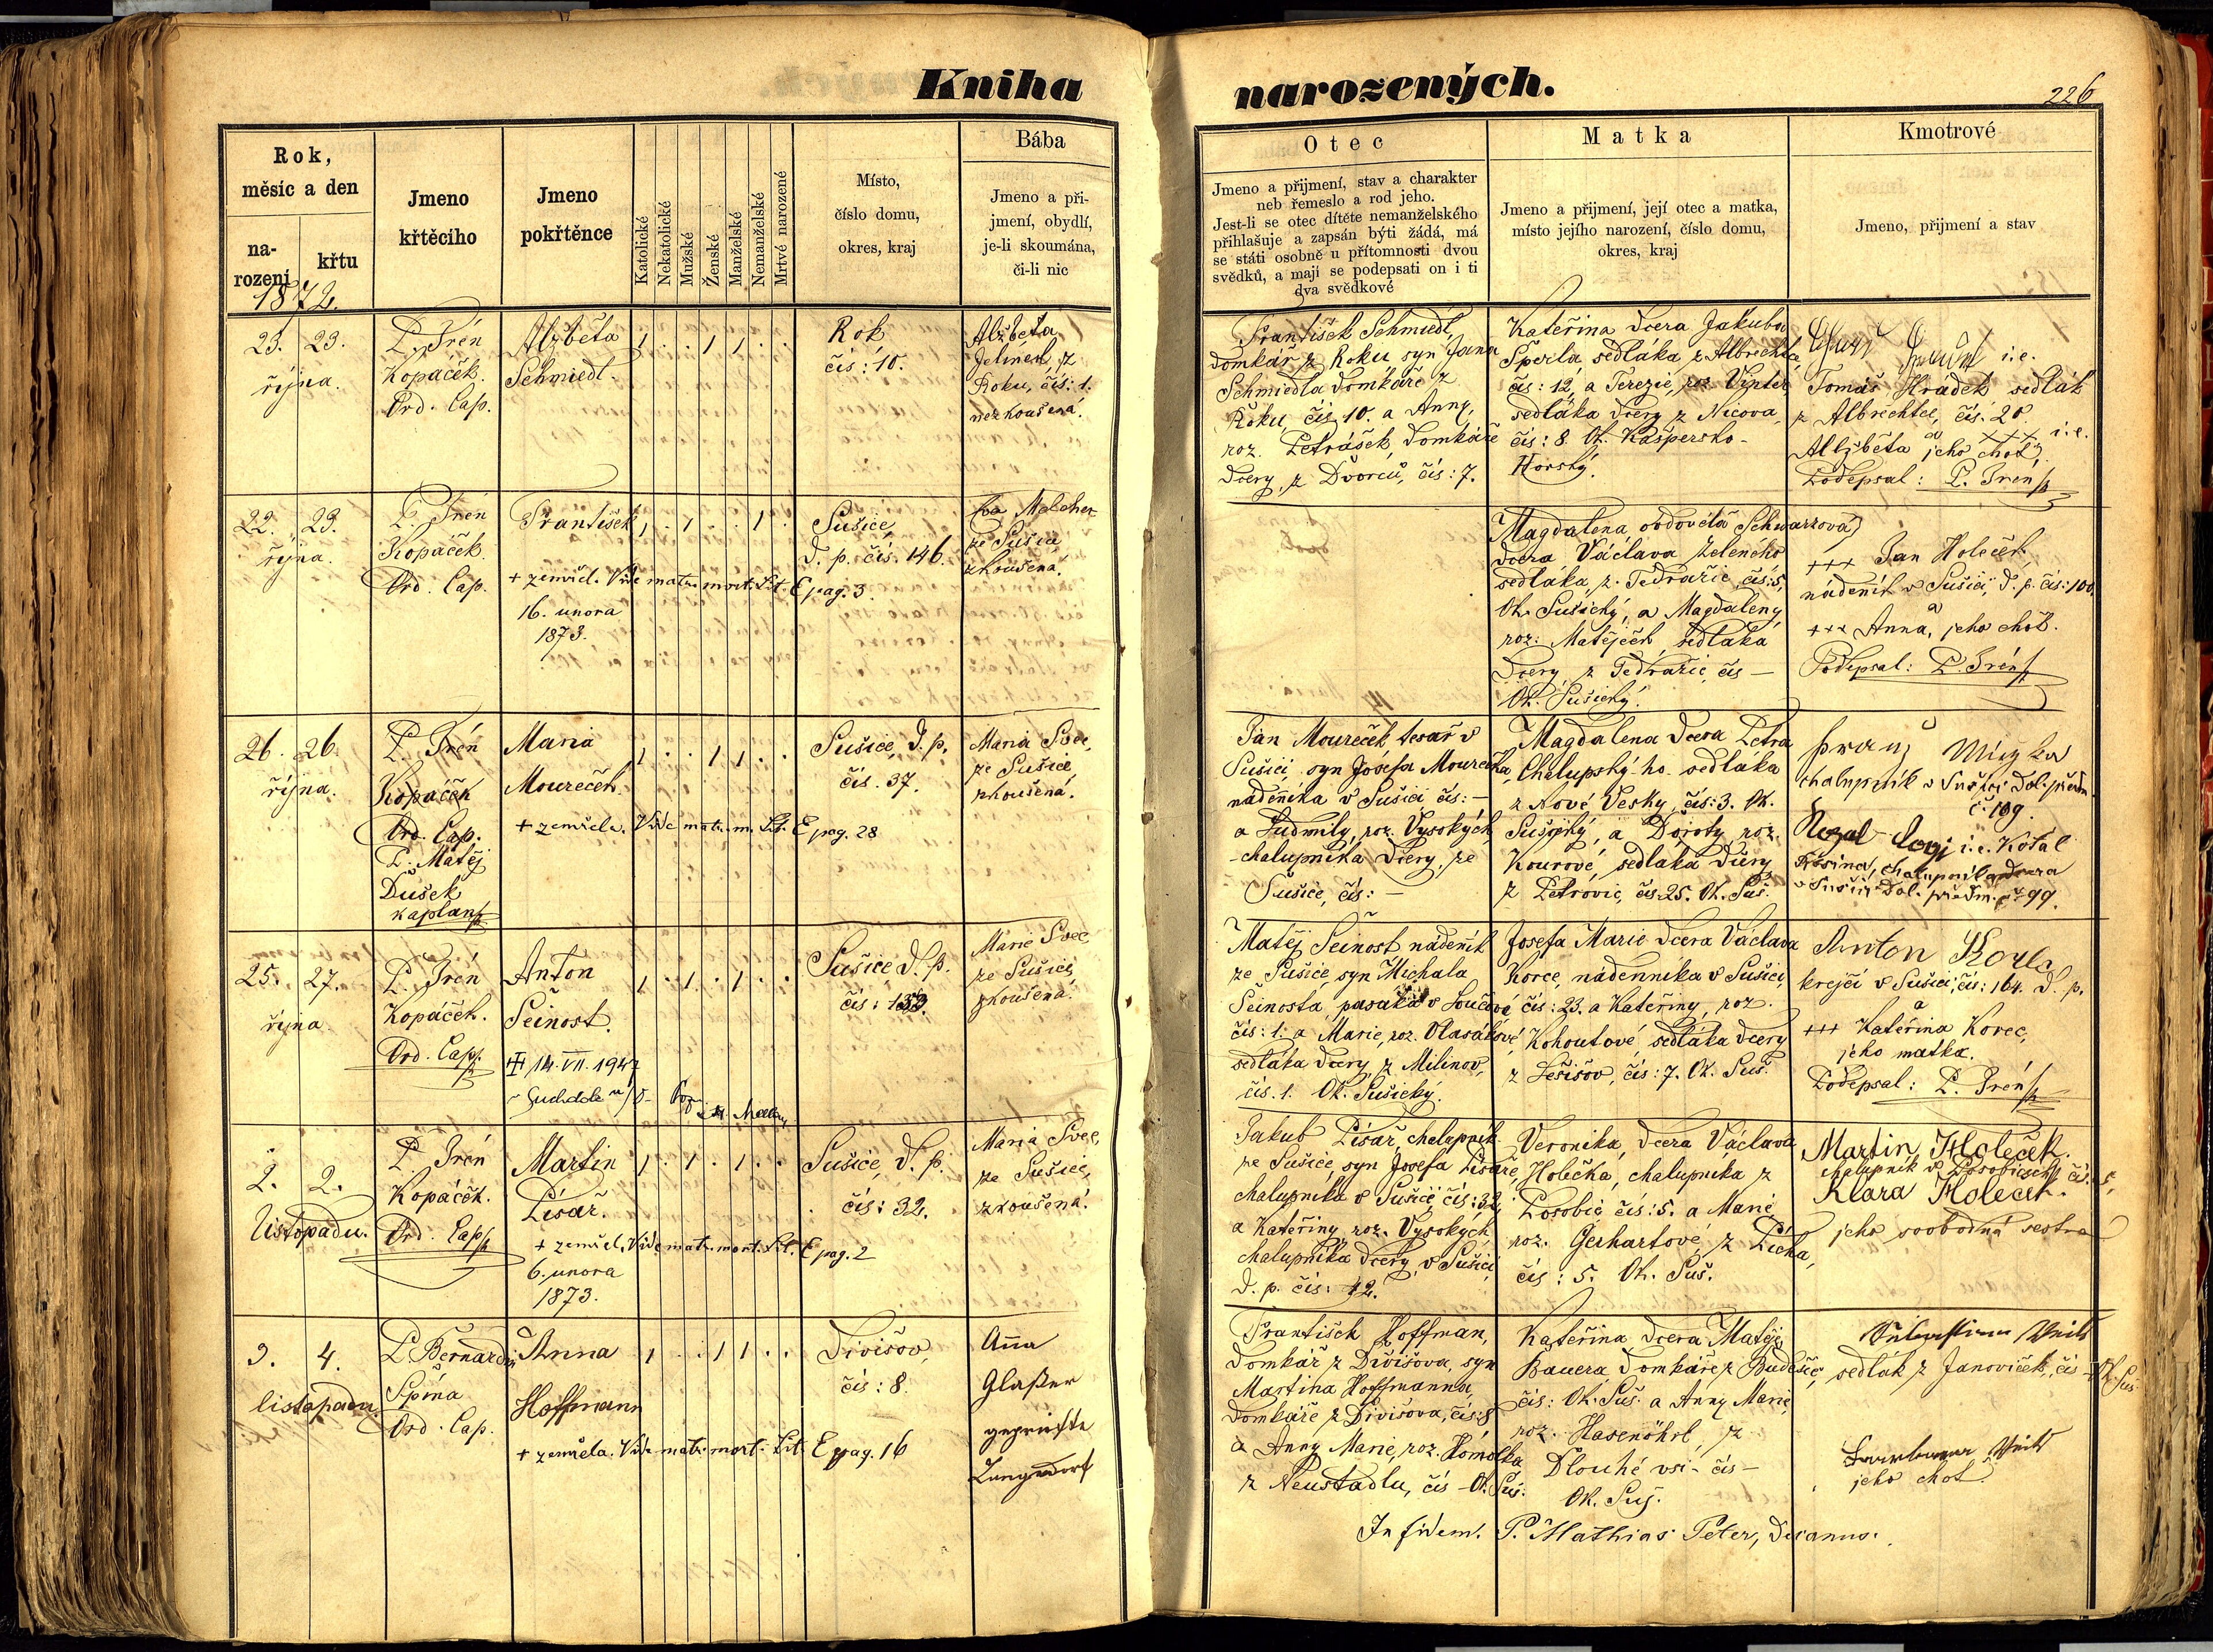 Kniha
narozených.
226
Rok,
měsíc a den
na-
rození
křtu
1872.
Jmeno
křtěcího
Jmeno
pokřtěnce
Katolické
Nekatolické
Mužské
Ženské
Manželské
Nemanželské
Mrtvé narozené
Místo,
číslo domu,
okres, kraj
Bába
Jmeno a při-
jmení, obydlí,
je-li skoumána,
či-li nic
Otec
Jmeno a přijmení, stav a charakter
neb řemeslo a rod jeho.
Jest-li se otec dítěte nemanželského
přihlašuje a zapsán býti žádá, má
se státi osobně u přítomnosti dvou
svědků, a mají se podepsati on i ti
dva svědkové
Matka
Jmeno a přijmení, její otec a matka,
místo jejího narození, číslo domu,
okres, kraj
Kmotrové
Jmeno, přijmení a stav
23. 23.
října.
P. Irén
Kopáček.
Ord. Cap.
Alžběta
Schmiedl.
1 . . 1 1 . .
Rok
čís: 10.
Alžběta
Roku, čís: 1.
nezkoušená.
František Schmiedl,
domkář z Roku, syn Jana
Schmiedla domkáře z
Roku, čís. 10. a Anny,
roz. Petrášek, domkáře
dcery, z Dvorců, čís: 7.
Kateřina dcera Jakuba
Šperla sedláka z Albrechta,
čís: 12, a Terezie, roz. Vinter,
sedláka dcery z Nicova,
čís: 8. Ok. Kašpersko-
Horský.
i.e.
Tomáš Hradek sedlák
z Albrechtce, čís. 20
a +++ i.e.
Alžběta jeho choť,
Podepsal: P. Irén
22. 23.
října.
P. Irén
Kopáček.
Ord. Cap.
František
1 . 1 . . 1 .
+ zemřel. Vide matr. mort. Lit. E pag. 3.
16. unora
1873.
Sušice,
d. p. čís. 146.
ze Sušice
zkoušená.
Magdalena, ovdovělá Schwarzová,
dcera Václava Zeleného
sedláka, z Tedražic, čís: 5,
Ok. Sušický, a Magdaleny
roz: Matějček, sedláka
dcery, z Tedražic, čís —
Ok. Sušický.
+++ Jan Holeček
nádeník v Sušici, d. p. čís: 100.
a
+++ Anna, jeho choť.
Podepsal: P. Irén
26. 26.
října.
P. Irén
Kopáček
Ord. Cap.
P. Matěj
Dušek
kaplan
Maria
Moureček.
1 . . 1 1 . .
+ zemřela. Vide matr. m. Lit. E pag. 28
Sušice, d. p.
čís. 37.
Maria Švec,
ze Sušice
zkoušená.
Jan Moureček tesař v
Sušici, syn Josefa Mourečka,
nádeníka v Sušici čís: —
a Ludmily, roz. Vysokých,
chalupníka dcery, ze
Sušice, čís: —
Magdalena dcera Petra
Chalupský-ho sedláka
z Nové Vesky, čís: 3. Ok.
Sušický, a Doroty roz.
Kourové, sedláka dcery
z Petrovic, čís. 25. Ok. Suš.
chalupník v Sušici Dol. předm.
č. 109.
i.e.
v Sušici Dol. předm. č. 99.
25. 27.
října.
P. Irén
Kopáček.
Ord. Cap.
Anton
Šeinost.
1 . 1 . 1 . .
14. VII. 1947
Sušice, d. p.
Marie Švec,
ze Sušice
zkoušená.
Matěj Šeinost nádeník
ze Sušice, syn Michala
Šeinosta, pasáka v Loučové
čís: 1. a Marie, roz. Vlasákové,
sedláka dcery, z Milínov,
čís. 1. Ok. Sušický.
Josefa Marie dcera Václava
Korce, nádenníka v Sušici,
čís: 23. a Kateřiny, roz.
Kohoutové, sedláka dcery
z Lešišov, čís: 7. Ok. Suš.
Anton
krejčí v Sušici, čís: 164. d. p.
a
+++ Kateřina Korec,
jeho matka.
Podepsal: P. Irén
2. 2.
listopadu.
P. Irén
Kopáček.
Ord. Cap.
Martin
Písař.
1 . 1 . 1 . .
+ zemřel. Vide matr. mort. Lit. E pag. 2
6. unora
1873.
Sušice, d. p.
čís: 32.
Maria Švec,
ze Sušice,
zkoušená.
Jakub Písař, chalupník
ze Sušice, syn Josefa Písaře,
chalupníka v Sušici, čís: 32,
a Kateřiny, roz. Vysokých,
chalupníka dcery, v Sušici,
d. p. čís: 42.
Veronika, dcera Václava
Holečka, chalupníka z
Posobic, čís: 5. a Marie
roz. Gerhartové, z Picha,
čís: 5. Ok. Suš.
Martin Holeček.
chalupník v Posobicich čís. 5,
Klara Holeček.
jeho svobodná sestra
3. 4.
listopadu.
P. Bernardin
Spina
Ord. Cap.
Anna
Hoffmann
1 . . 1 1 . .
+ zemřela. Vide matr. mort. Lit. E pag. 16
Divišov,
čís: 8.
Anna
Glaßer
geprüfte
Langendorf
František Hoffman,
domkář z Divišova, syn
Martina Hoffmanna,
domkáře z Divišova, čís: 8
a Anny Marie, roz. Homolka
z Neustadlu, čís — Ok. Suš.
Kateřina dcera Matěje
Bauera, domkáře z Budětic,
čís: Ok. Suš. a Anny Marie,
roz. Hasenöhrl, z
Dlouhé vsi — čís —
Ok. Suš.
Sebastian Veits
sedlák z Janoviček, čís — Ok. Suš.
Veits
jeho choť.
In fidem. P. Mathias Peter, Decanus.